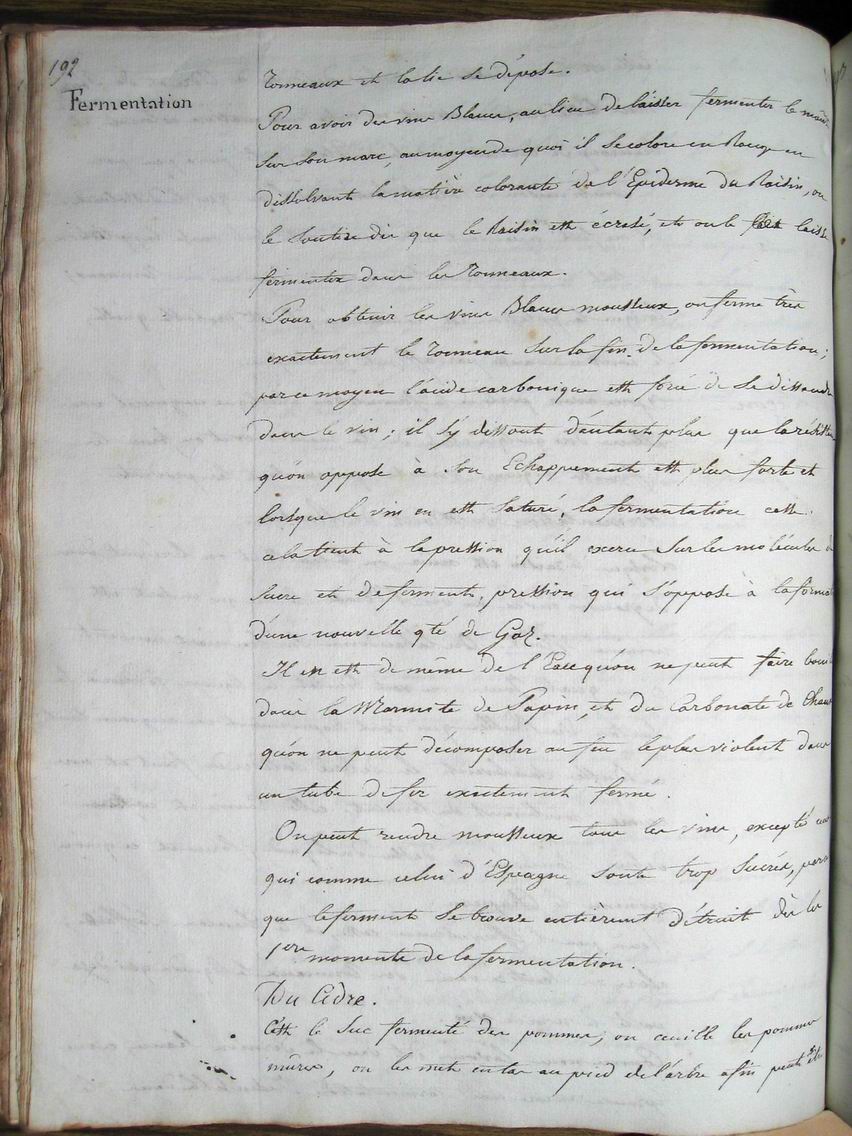 192
Fermentation
Tonneaux et la lie se dépose.
Pour avoir des vins Blancs, au lieu de laisser fermenter le moût
sur son marc, au moyen de quoi il se colore en Rouge en
dissolvant la matière colorante de l'Epiderme du Raisin, on
le soutire dès que le Raisin est écrasé, et on le laisse
fermenter dans les Tonneaux.
Pour obtenir les vins Blancs mousseux, on ferme très
exactement le Tonneau sur la fin de la fermentation;
par ce moyen l'acide carbonique est forcé de se dissoudre
dans le vin; il s'y dissout d'autant plus que la
qu'on oppose à son Echappement est plus forte et
lorsque le vin en est saturé, la fermentation cesse.
cela tient à la pression qu'il exerce sur les molécules de
sucre et de ferment, pression qui s'oppose à la
d'une nouvelle qté de Gaz.
Il en est de même de l'Eau qu'on ne peut faire
dans la Marmite de Papin, et du Carbonate de Chaux
qu'on ne peut décomposer au feu le plus violent dans
un tube de fer exactement fermé.
On peut rendre mousseux tous les vins, excepté ceux
qui comme celui d'Espagne sont trop sucrés, parce
que le ferment se trouve entièremt détruit dès les
1ers moments de la fermentation.
Du Cidre.
C'est le suc fermenté des pommes; on cueille les pommes
mûres, on les met en tas au pied de l'arbre afin